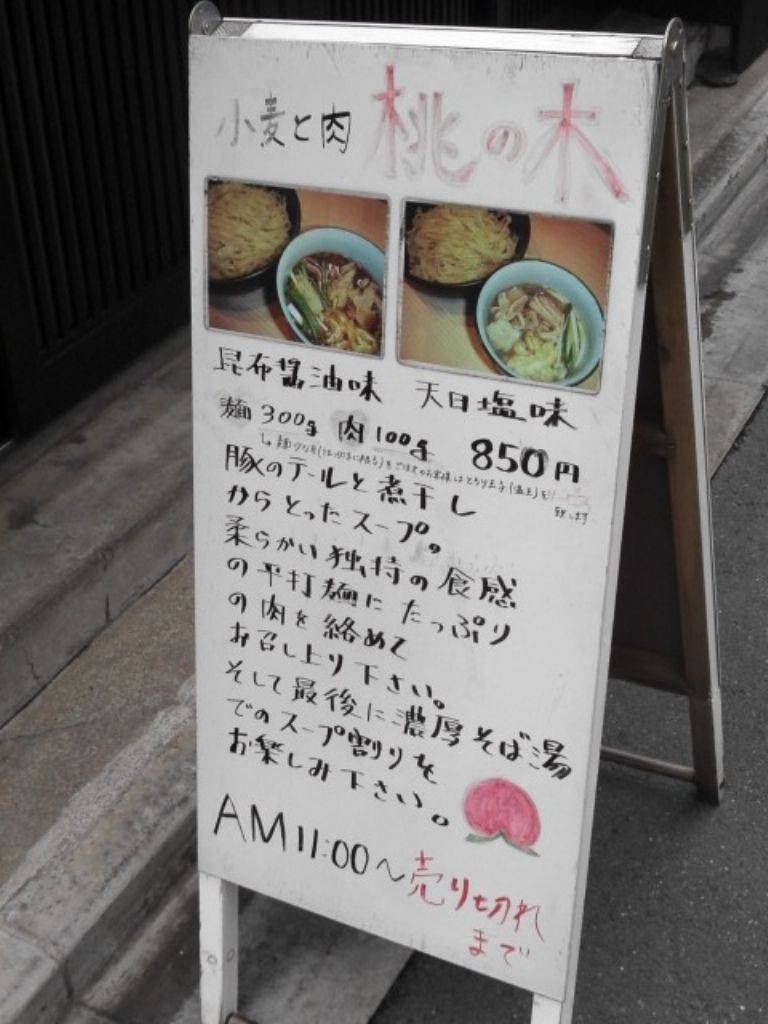 小麦と肉 桃の木
昆布醤油味 天日塩味
麺300g 肉100g 850円
豚のテールと煮干し
からとったスープ。
柔らかい独特の食感
の平打麺にたっぷり
の肉を絡めて
お召し上り下さい。
そして最後に濃厚そば湯
でのスープ割りを
お楽しみ下さい。
AM11:00〜売り切れ
まで